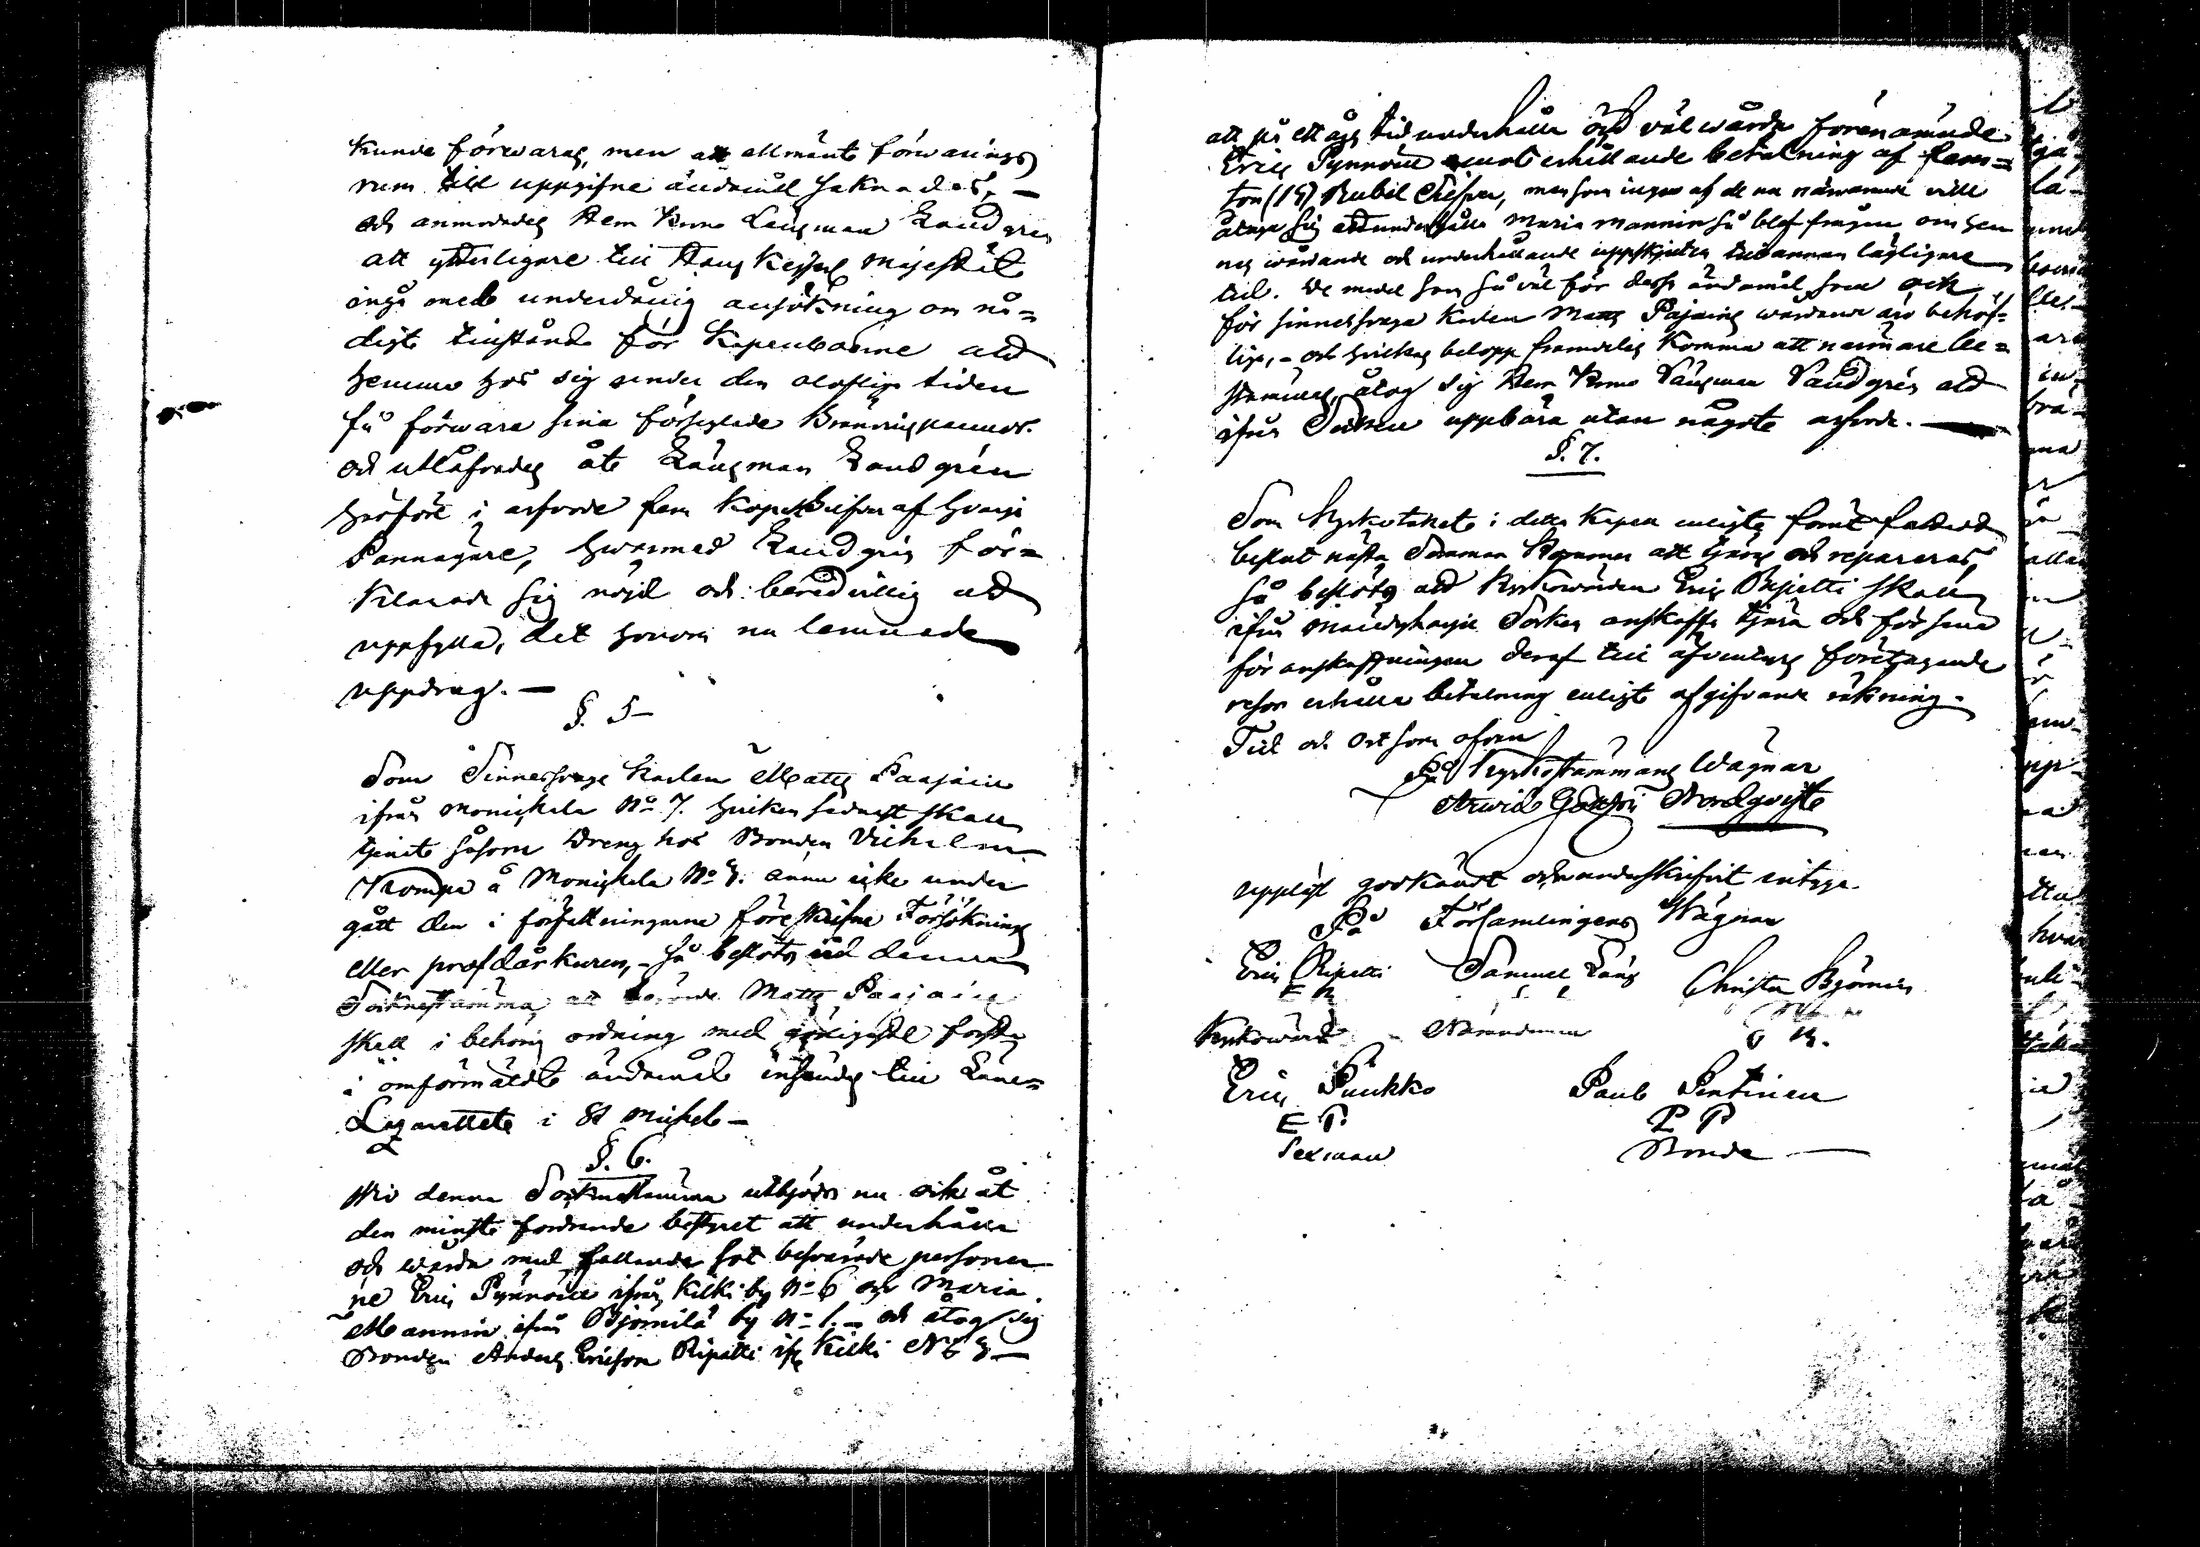 kunde förwaras, men att allmänt förwarings
rum till uppgifne ändamål saknades, —
och anmodades Herr Krono Länsman Landgren
att ytterligare till Hans Kejserl Majestät
ingå med underdånig ansökning om nå=
digt tillstånd för Kapellboerne att
hemma hos sig under den oloflige tiden
få förwara sina förseglade Bränvinspannor.
och utlåfvades åt Länsman Landgren
härföre i arfvode fem Kopek Silfver af hvarje
Pannägare, hwarmed Landgren för=
klarade sig nöjd och beredvillig att
uppfylla, det honom nu lemnade
uppdrag. —
§. 5 —
Som Sinnessvage Karlen Matts Paajain
ifrån Monikala No 7. hvilken sednast skall
tjent såsom Dreng hos Bonden Vilhelm
Kromppa å Monikala No 3. ännu icke under
gått den i författningarne föreskrifne Försöknings
eller profdårkuren, - så beslöts vid denna
Sockenstämma, att Matts Paajain
skall i behörig ordning med första
i omförmäldte ändamål insändas till Läns=
Lazarettet i St Michel —
§. 6.
Wid denna Sockenstämma utbjöds nu ock åt
den minst fordrande bestyret att underhålla
och wårda med fallande sot besvärade personer
ne Eric Pynnöin ifrån Kilki by No 6 och Maria
Mannin ifrån Björnilä by No 1. — och åtog sig
Bonden Anders Ericson Ripatti ifr Kilki No 3 —
att på ett års tid underhålla och väl wårda förenämnde
Eric Pynnöin emot erhållande betalning af fem=
ton (15) Rubel Silfver, men som ingen af de nu närwarande ville
åtaga sig att underhålla Maria Mannin så blef frågan om hen
nes wårdande och underhållande uppskjuten till annan lägligare
tid. De medel som så väl för dessa ändamål som ock
för sinnessvaga Karlen Matts Pajains wårdande äro behöf=
liga, - och hvilkas belopp framdeles komma att närmare be=
stämmas, åtog sig Herr Krono Länsman Landgren att
ifrån Socknen uppbära utan något arfvode. —
§. 7.
Som Kyrkotaket i detta Kapell enligt förut fattadt
beslut nästa Sommar kommer att tjäras och repareras,
så beslöts att Kyrkowärden Eric Ripatti skall
ifrån Mäntyharju Socken anskaffa tjära och för sina
för anskaffningen deraf till äfventyrs företagande
resor erhålla betalning enligt afgifvande räkning.
Tid och Ort som ofvan
På Kyrkostämmans Wägnar
Arwid Nordqvist
Uppläst godkändt och underskrifvit intyga.
På Församlingens Wägnar
Eric Ripatti Samuel Läng Christer Björnin
E R S L
Kyrkowärd Nämndeman
Eric Puukko Paul Pentinen
E P. P P
Sexman Bonde —